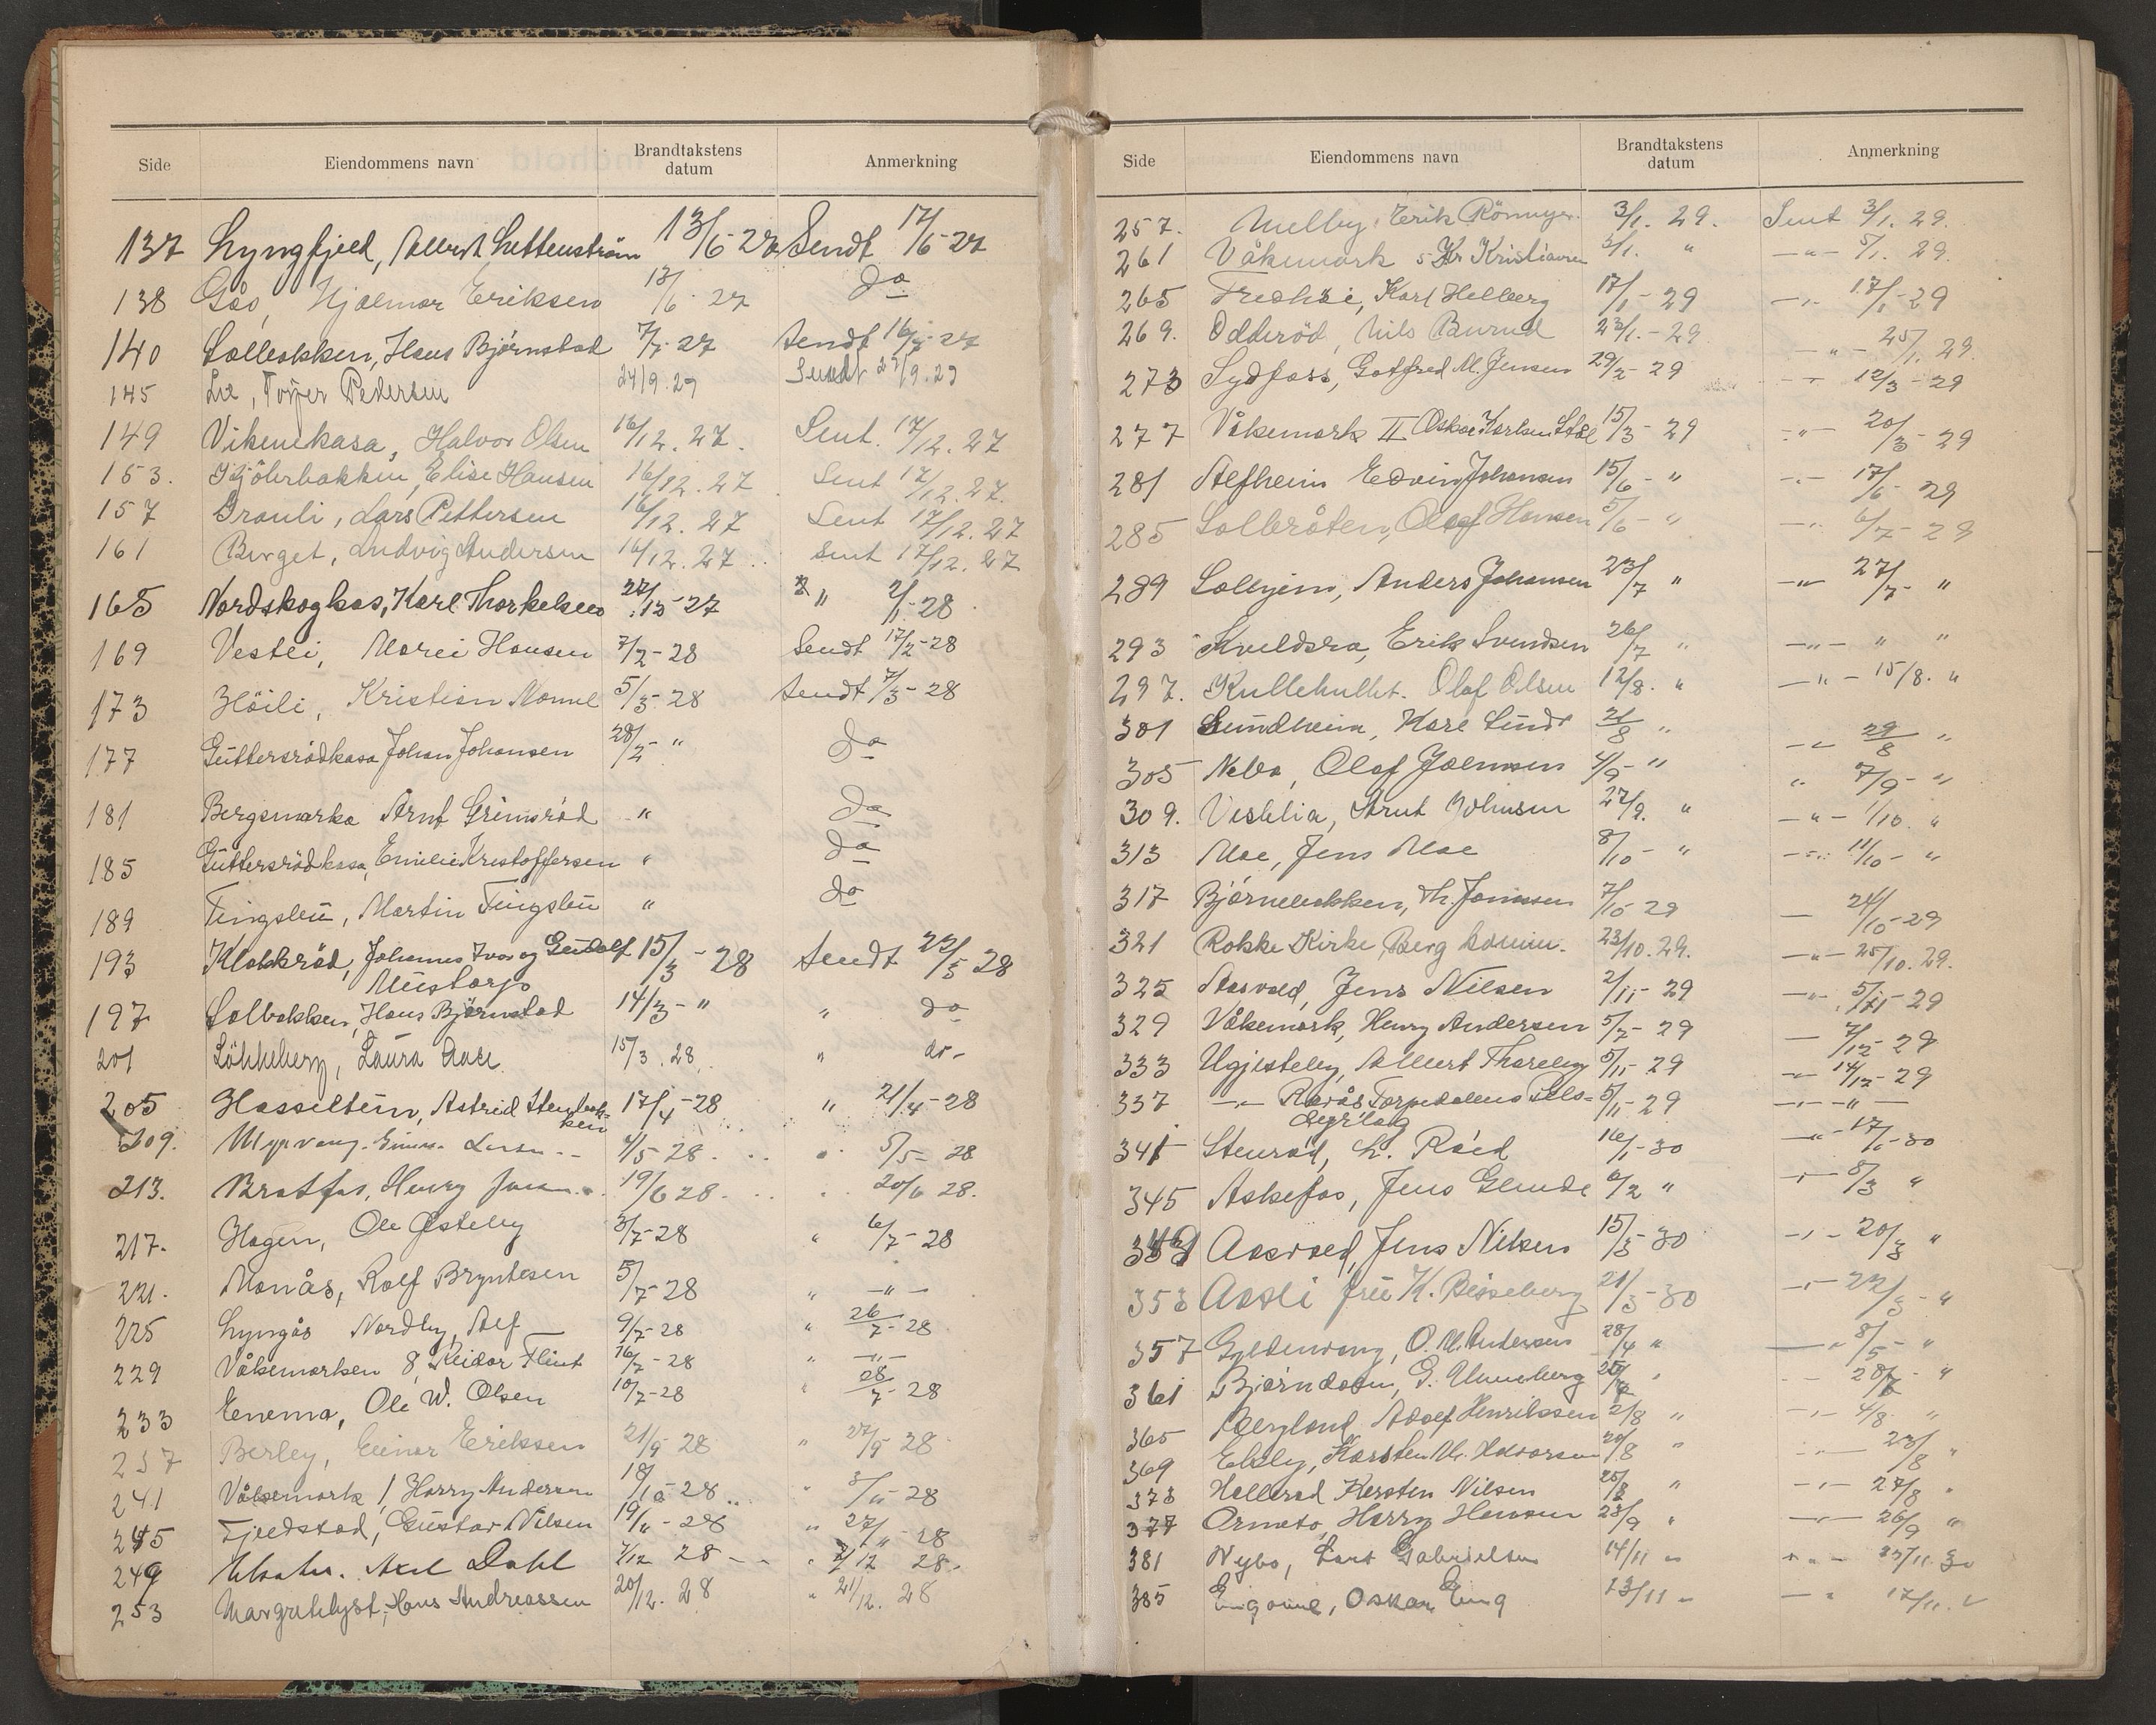 Side Eiendommens navn Brandtakstens datum Anmerkning
137 Lyngfjeld, Albert Luttenström 13/6-27 Sendt 17/6-27
138 Gåo, Hjalmar Eriksen 13/6-27 do
140 Solbakken, Hans Björnstad 7/7-27 Sendt 16/7-27
145 Lia, Torjer Pedersen 24/9.27 Sendt 27/9.27
149 Vikenekasa, Halvor Olsen 16/12.27. Sent. 17/12.27
153. Kjölerbakken, Elise Hansen 16/12.27 Sent 17/12.27.
157 Granli, Lars Pettersen 16/12.27 Sent 17/12.27
161 Berget, Ludvig Andersen 16/12.27 Sent 17/12.27
165 Nordskogkas, Karl Thorkelsen 27/12-27 " 2/1-28
169 Vestli, Marei Hansen 7/2-28 Sendt 17/2-28
173 Höili, Kristian Momel 5/3-28 Sendt 7/3-28
177 Guttersrödkasa Johan Johansen 28/2- " do
181 Bergsmarka Arnt Grimsröd " do
185 Guttersrödkasa, Emilie Kristoffersen " do
189 Tingsleü, Martin Tingsleü " do
193 Klokkröd, Johannes Ivar og Gudolf 15/3-28 Sendt 22/3 28
Mustorp
197 Solbakken, Hans Björnstad 14/3-" " do
201 Lökkeberg, Laura Aase 15/3.28. " do-
205 Hasseltein, Astrid Stenbek- 17/4-28 " 21/4-28
ken
209. Myrvang. Einar Larsen 4/5 28. " 5/5-28
213. Bratfos, Henry 19/6 28. 20/6 28.
217. Hagen, Ole Østeby 3/7-28 " 6/7-28
221. Monås, Rolf Bryntesen 5/7-28 " -"-
225 Lyngås Nordby, Alf 9/7-28 " 26/7-28
229 Våkemarken 8, Reidar Flint 16/7-28 " -"-
233 Enema, Ole W. Olsen 10/7-28 " 28/7-28
237 Berley, Einar Eriksen 21/9 28 " 27/9 28
241 Våkemark 1 Harry Andersen 18/10-28 " 3/11-28
245 Fjeldstad, Gustav Nilsen 19/11-28 " 27/11-28
249 Axel Dahl 7/12 28 " 7/12 28.
253 Margretelyst, Hans Andreassen 20/12.28 " 21/12.28
Side Eiendommens navn Brandtakstens datum Anmerkning
257. Melby, Erik Rönmyr. 3/1.29. Sent 3/1.29.
261 Våkemark 5 Kr Kristiansen 3/1. " -"- 5/1.29.
265 Fredhöi, Karl Helberg 17/1-29 -"- 17/1-29
269. Odderöd, Nils Burud 23/1.-29 -"- 25/1.29.
273 Sydfoss, Gotfred M. Jensen 29/2-29 -"- 12/3-29
277 Våkemark II Oskar Karlsen Stöl 15/3-29 -"- 20/3-29
281 Alfheim Edvin Johansen 15/6-" -"- 17/6-29
285 Solbråten, Olaf Hansen 5/6-" -"- 6/7-29
289 Solhjem, Anders Johansen 23/7 " -"- 27/7-"
293 Kveldsro, Erik Svendsen 26/7 " -"- " "
297. Kullehullet. Olaf Olsen 12/8. " -"- 15/8. "
301 Lundheim, Kare Lund 21/8 " -"- 29/8 "
305 Nebo, Olaf Johnsen 4/9-" " 7/9-"
309. Veslelia, Arnt Johnsen 27/9. " -"- 1/10. "
313 Moe, Jens Moe 8/10-" -"- 11/10-"
317 Bjørnebakken, Th. Jonassen 7/10-29 - 24/10-29
321 Rokke Kirke, Berg komm. 23/10.29. -"- 25/10.29.
325 Aasvold, Jens Nilsen 2/11-29 -"- 5/11-29
329 Våkemark, Henry Andersen 5/7-29 - 7/12-29
333 Ugjesteby, Albert Thoreby 5/11-29 -"- 14/12-29
337 -"- Ravås Torpedalens Sels- 5/11-29 -"- -"-
341 Stenröd, L. Röed 16/1-30 -"- 17/1-30
345 Askefos, Jens Glende 6/2 " -"- 8/3 "
349 Aasvold, Jens Nilsen 15/3-30 -"- 20/3 "
353 Aasli fru K. Bisseberg 21/3-30 -"- 22/3-"
357 Gyldenvang, O. M. Andersen 28/4 " -"- 8/5-"
361 Bjørndalen, G. Unneberg -"-
365 Bergland Adolf Henrikssen 2/8 " -"- 4/8 "
369 Ekeby, Karsten M. Halvorsen 20/8 " -"- 23/8 "
373 Holleröd Kersten Nilsen 25/8 " -"- 27/8 "
377 Harry Hansen 23/9 " -"- 26/9 "
381 Nybo, Lars Gabrielsen 14/11 " -"- 17/11.30
385 Engaune, Oskar Eng 13/11 " -"- 17/11. "